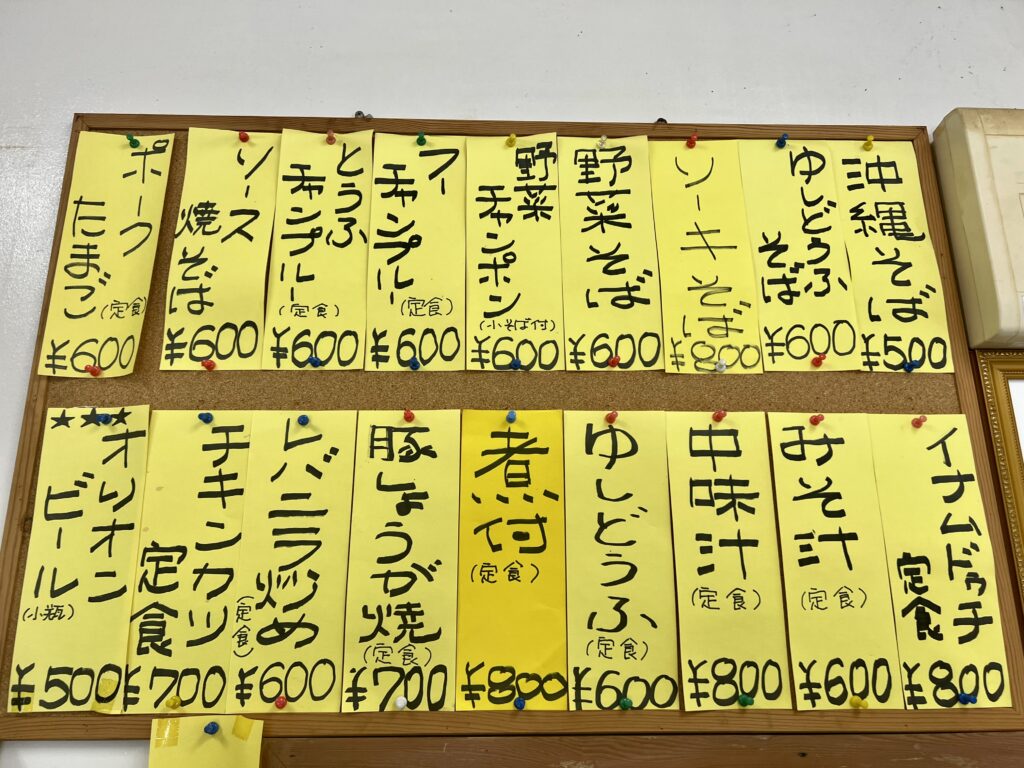 沖縄そば
¥500
ゆしどうふ
そば
¥600
ソーキそば
¥800
野菜そば
¥600
野菜
チャンポン
(小そば付)
¥600
フー
チャンプルー
(定食)
¥600
とうふ
チャンプルー
(定食)
¥600
ソース
焼そば
¥600
ポーク
たまご
(定食)
¥600
イナムドゥチ
定食
¥800
みそ汁
(定食)
¥600
中味汁
(定食)
¥800
ゆしどうふ
(定食)
¥600
煮付
(定食)
¥800
豚しょうが焼
(定食)
¥700
レバニラ炒め
(定食)
¥600
チキンカツ
定食
¥700
★★★
オリオン
ビール
(小瓶)
¥500